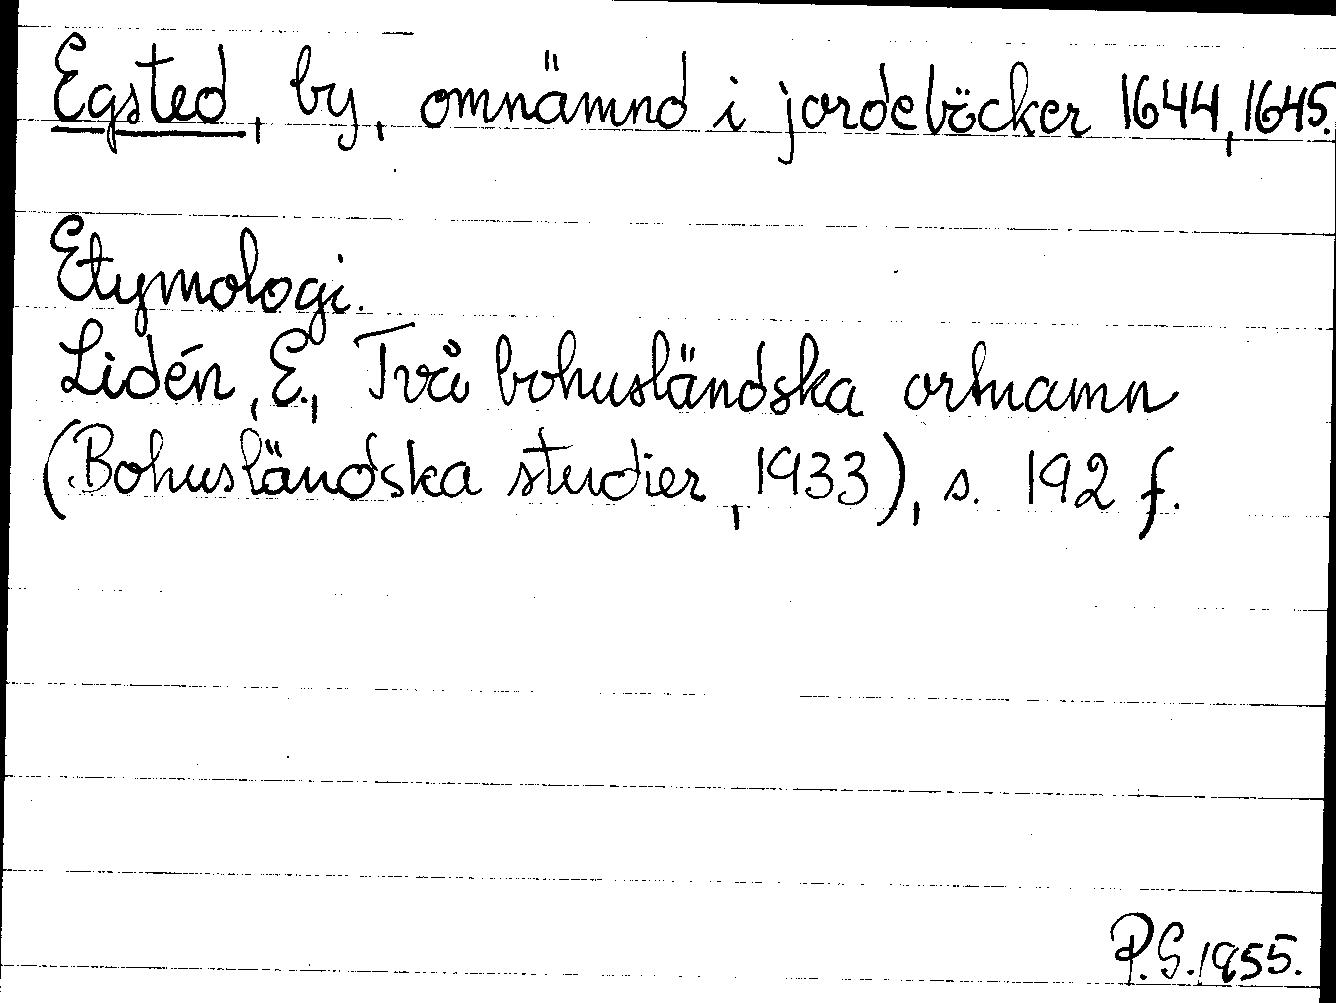 Egsted, by, omnämnd i jordeböcker 1644, 1645.
Etymologi.
Lidén, E., Två bohusländska ortnamn
(Bohusländska studier, 1933), s. 192 f.
P.G. 1955.